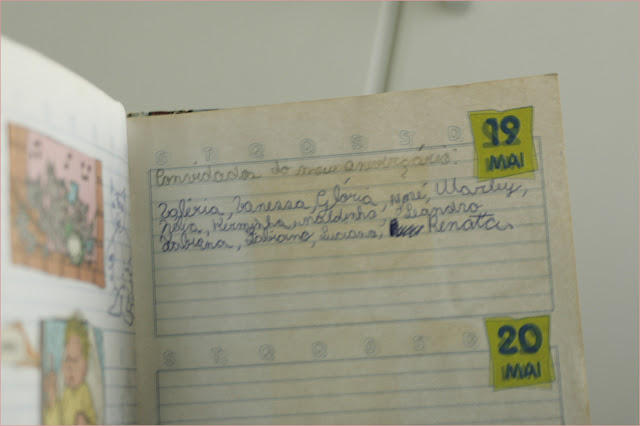 S T Q Q S S D
19
MAI
Convidados do meu aniverzário:
Valéria, Vanessa, Glória, José, Warley,
Neya, Herminha, naldinho, Leandro
Fabiana, Fabiano, Luciana, Renata.
S T Q Q S S D
20
MAI